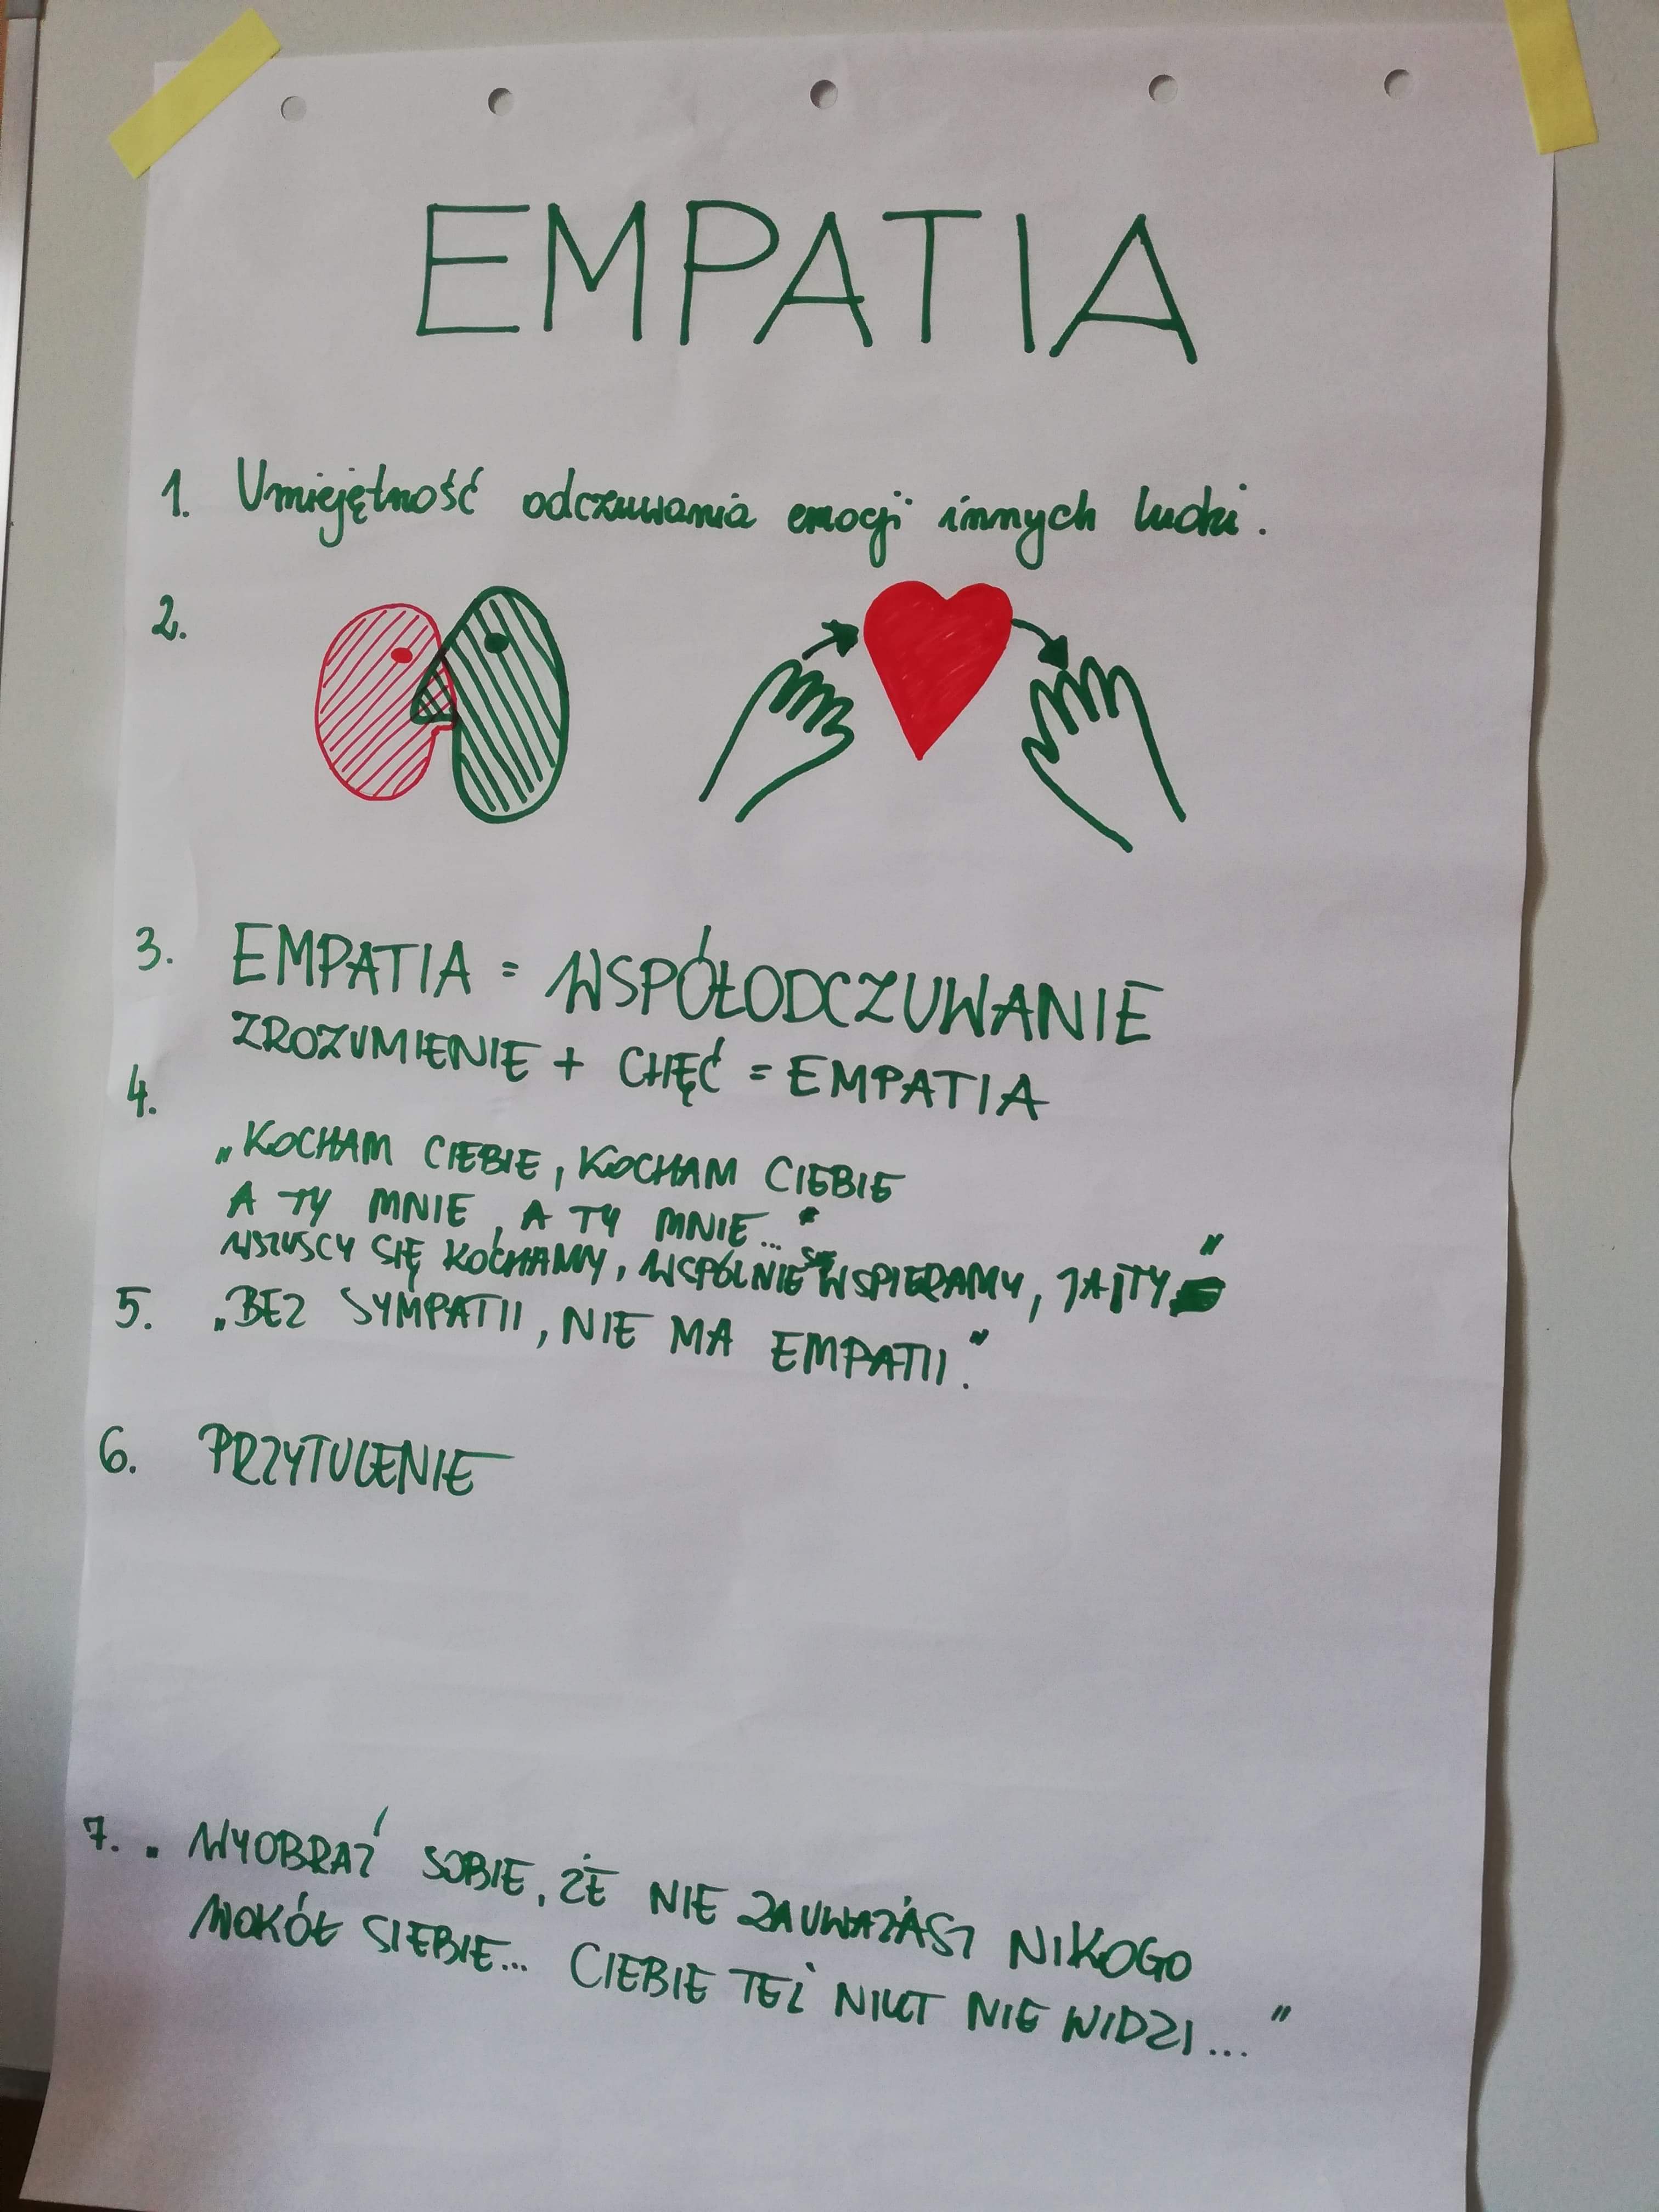 EMPATIA
1. Umiejętność odczuwania emocji innych ludzi.
2.
3. EMPATIA = WSPÓŁODCZUWANIE
ZROZUMIENIE + CHĘĆ = EMPATIA
4.
„KOCHAM CIEBIE, KOCHAM CIEBIE
A TY MNIE, A TY MNIE..."
WSZYSCY SIĘ KOCHAMY, WSPÓLNIE SIĘ WSPIERAMY, JA I TY"
5. „BEZ SYMPATII, NIE MA EMPATII."
6. PRZYTULENIE
7. „WYOBRAŹ SOBIE, ŻE NIE ZAUWAŻASZ NIKOGO
WOKÓŁ SIEBIE... CIEBIE TEŻ NIKT NIE WIDZI..."